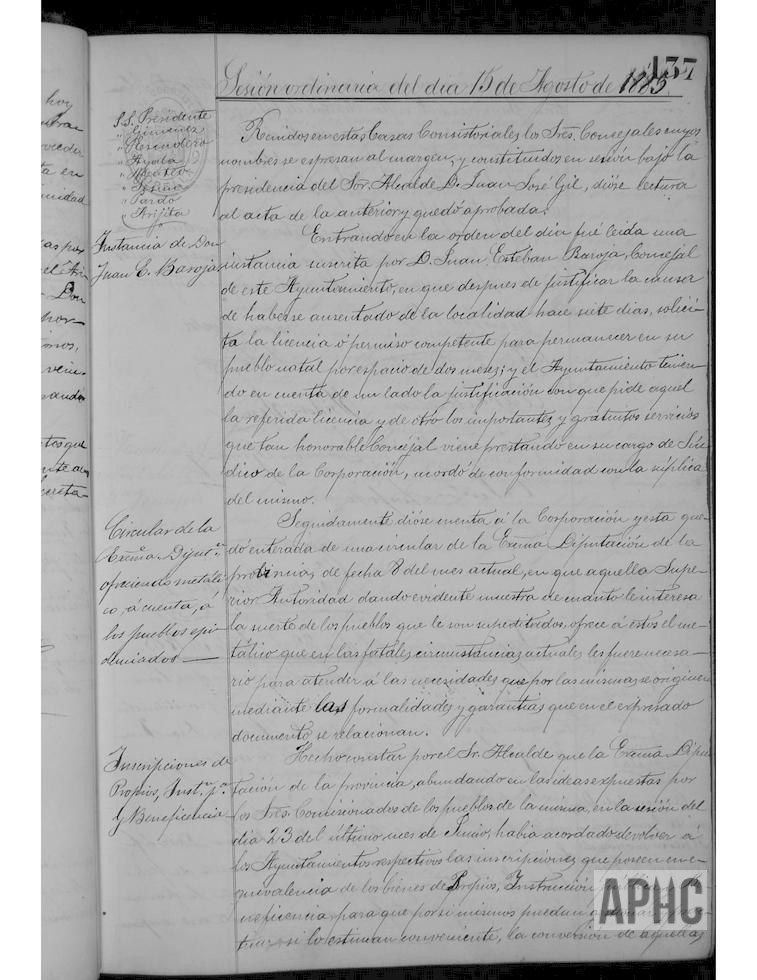 137
Sesión ordinaria del dia 15 de Agosto de 1885
S.S. Presidente
" Gimenez
" Rosendero
" Ayala
" Pardo
" Arijita
Reunidos en estas Casas Consistoriales los Sres. Concejales cuyos
nombres se espresan al margen, y constituidos en sesión bajo la
presidencia del Sor. Alcalde D. Juan José Gil, dióse lectura
al acta de la anterior y quedó aprobada.
Instancia de Don
Juan E. Baroja
Entrando en la orden del dia fué leida una
instancia suscrita por D. Juan Esteban Baroja, Concejal
de este Ayuntamiento, en que despues de justificar la causa
de haberse ausentado de la localidad hace siete dias, solici-
ta la licencia ó permiso competente para permanecer en su
pueblo natal por espacio de dos meses; y el Ayuntamiento tenien-
do en cuenta de un lado la justificación con que pide aquel
la referida licencia y de otro los importantes y gratuitos servicios
que tan honorable Concejal viene prestando en su cargo de Sín-
dico de la Corporación, acordó de conformidad con la súplica
del mismo.
Circular de la
Excma. Diput.n
ofreciendo metáli-
co, á cuenta, á
los pueblos epi-
demiados
Seguidamente dióse cuenta á la Corporación y esta que-
dó enterada de una circular de la Excma Diputación de la
provincia, de fecha 8 del mes actual, en que aquella Supe-
rior Autoridad dando evidente muestra de cuanto le interesa
la suerte de los pueblos que le son supeditados, ofrece á estos el me-
tálico que en las fatales circunstancias actuales les fuere necesa-
rio para atender á las necesidades que por las mismas se originen
mediante las formalidades y garantias que en el expresado
documento se relacionan.
Inscripciones de
Propios, Inst.n p.a
y Beneficencia
Hecho constar por el Sr. Alcalde que la Excma Dipu-
tación de la provincia, abundando en las ideas expuestas por
los Sres. Comisionados de los pueblos de la misma, en la sesión del
dia 23 del último mes de Junio, habia acordado devolver á
los Ayuntamientos respectivos las inscripciones que poseen en e-
quivalencia de los bienes de Propios, Instrucción
neficencia para que por si mismos puedan
si lo estiman conveniente, la conversión de aquellas
APHC